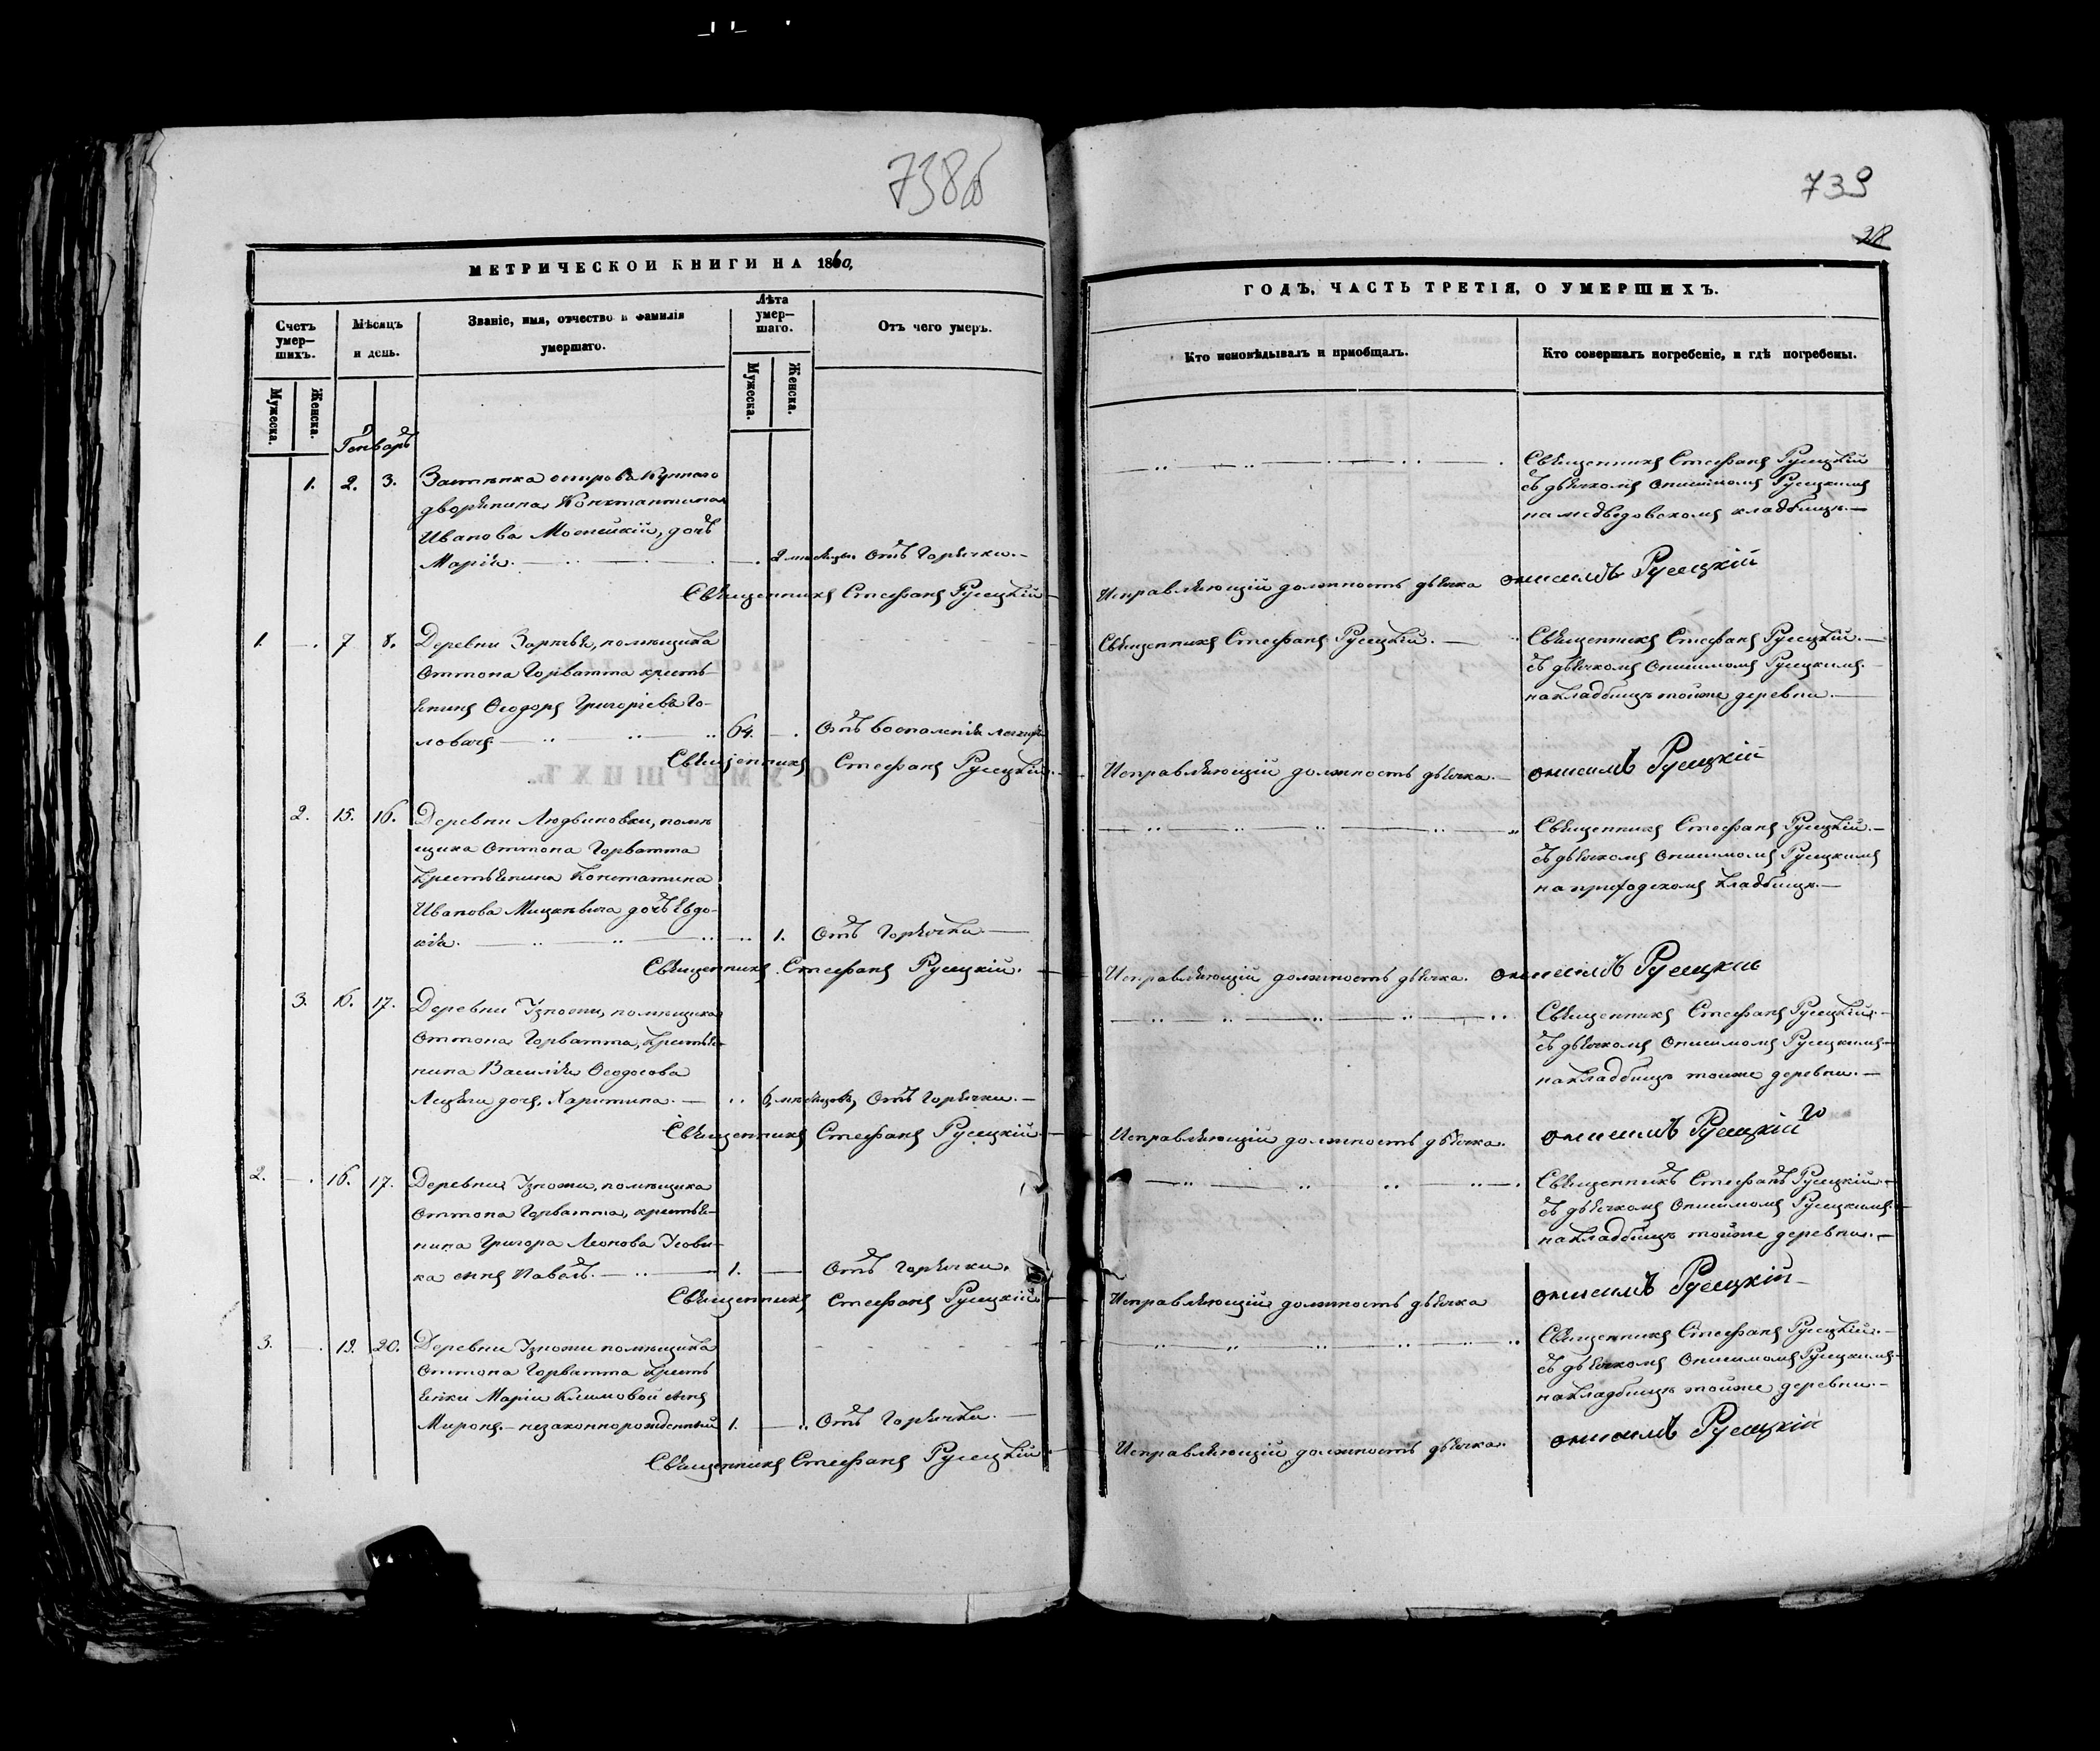 738об
739
28
МЕТРИЧЕСКОЙ КНИГИ НА 1860,
ГОДЪ, ЧАСТЬ ТРЕТІЯ, О УМЕРШИХЪ.
Счетъ умер–шихъ.
Мѣсяцъ и день.
Званіе, имя, отчество и фамилія умершаго.
Лѣта умер–шаго.
Отъ чего умеръ.
Кто исповѣдывалъ и пріобщалъ.
Кто совершалъ погребеніе, и гдѣ погребены.
Мужеска.
Женска.
Мужеска.
Женска.
Генварь
1. 2. 3.
дворянина Константина
Иванова дочь
Марія. 2 мѣсяцы Отъ Горячки.
Священникъ Стефанъ Русецкій
Священникъ Стефанъ Русецкій
съ дьячкомъ Онисимомъ Русецкимъ
на медведовскомъ кладбищѣ.
Исправляющій должность дьячка Онисимъ Русецкій
1. 7 8. Деревни помѣщика
Оттона Горватта кресть–
янинъ Ѳеодоръ Григоріевъ Го–
ловачъ 64. Отъ воспаленія легкихъ
Священникъ Стефанъ Русецкій.
Священникъ Стефанъ Русецкій.
Священникъ Стефанъ Русецкій.
съ дьячкомъ Онисимомъ Русецкимъ.
на кладбищѣ тойже деревни.
Исправляющій должность дьячка. Онисимъ Русецкій
2. 15. 16. Деревни Людвиновки, помѣ
щика Оттона Горватта
крестьянина Константина
Иванова Мицкевича дочь Евдо–
кія. 1. Отъ Горячки.
Священникъ Стефанъ Русецкій.
Священникъ Стефанъ Русецкій.
съ дьячкомъ Онисимомъ Русецкимъ
на приходскомъ кладбищѣ.
Исправляющій должность дьячка. Онисимъ Русецкій
3. 16. 17. Деревни Узножи, помѣщика
Оттона Горватта, крестья–
нина Василія Ѳеодосова
дочь, Харитина. 6, мѣсяцовъ, Отъ Горячки.
Священникъ Стефанъ Русецкій
Священникъ Стефанъ Русецкій.
съ дьячкомъ Онисимомъ Русецкимъ
на кладбищѣ тойже деревни.
Исправляющій должность дьячка. Онисимъ Русецкій
2. 16. 17. Деревни Узножи, помѣщика
Оттона Горватта, крестья–
нина Григора Леонова
ка сынъ Павелъ. 1. Отъ Горячки.
Священникъ Стефанъ Русецкій
Священникъ Стефанъ Русецкій.
съ дьячкомъ Онисимомъ Русецкимъ.
на кладбищѣ тойже деревни.
Исправляющій должность дьячка Онисимъ Русецкій
3. 19. 20. Деревни Узножи помѣщика
Оттона Горватта кресть
янки Маріи Климовой сынъ
Миронъ. – незаконнорожденный 1. Отъ Горячки.
Священникъ Стефанъ Русецкій
Священникъ Стефанъ Русецкій.
съ дьячкомъ Онисимомъ Русецкимъ
на кладбищѣ тойже деревни.
Исправляющій должность дьячка. Онисимъ Русецкій